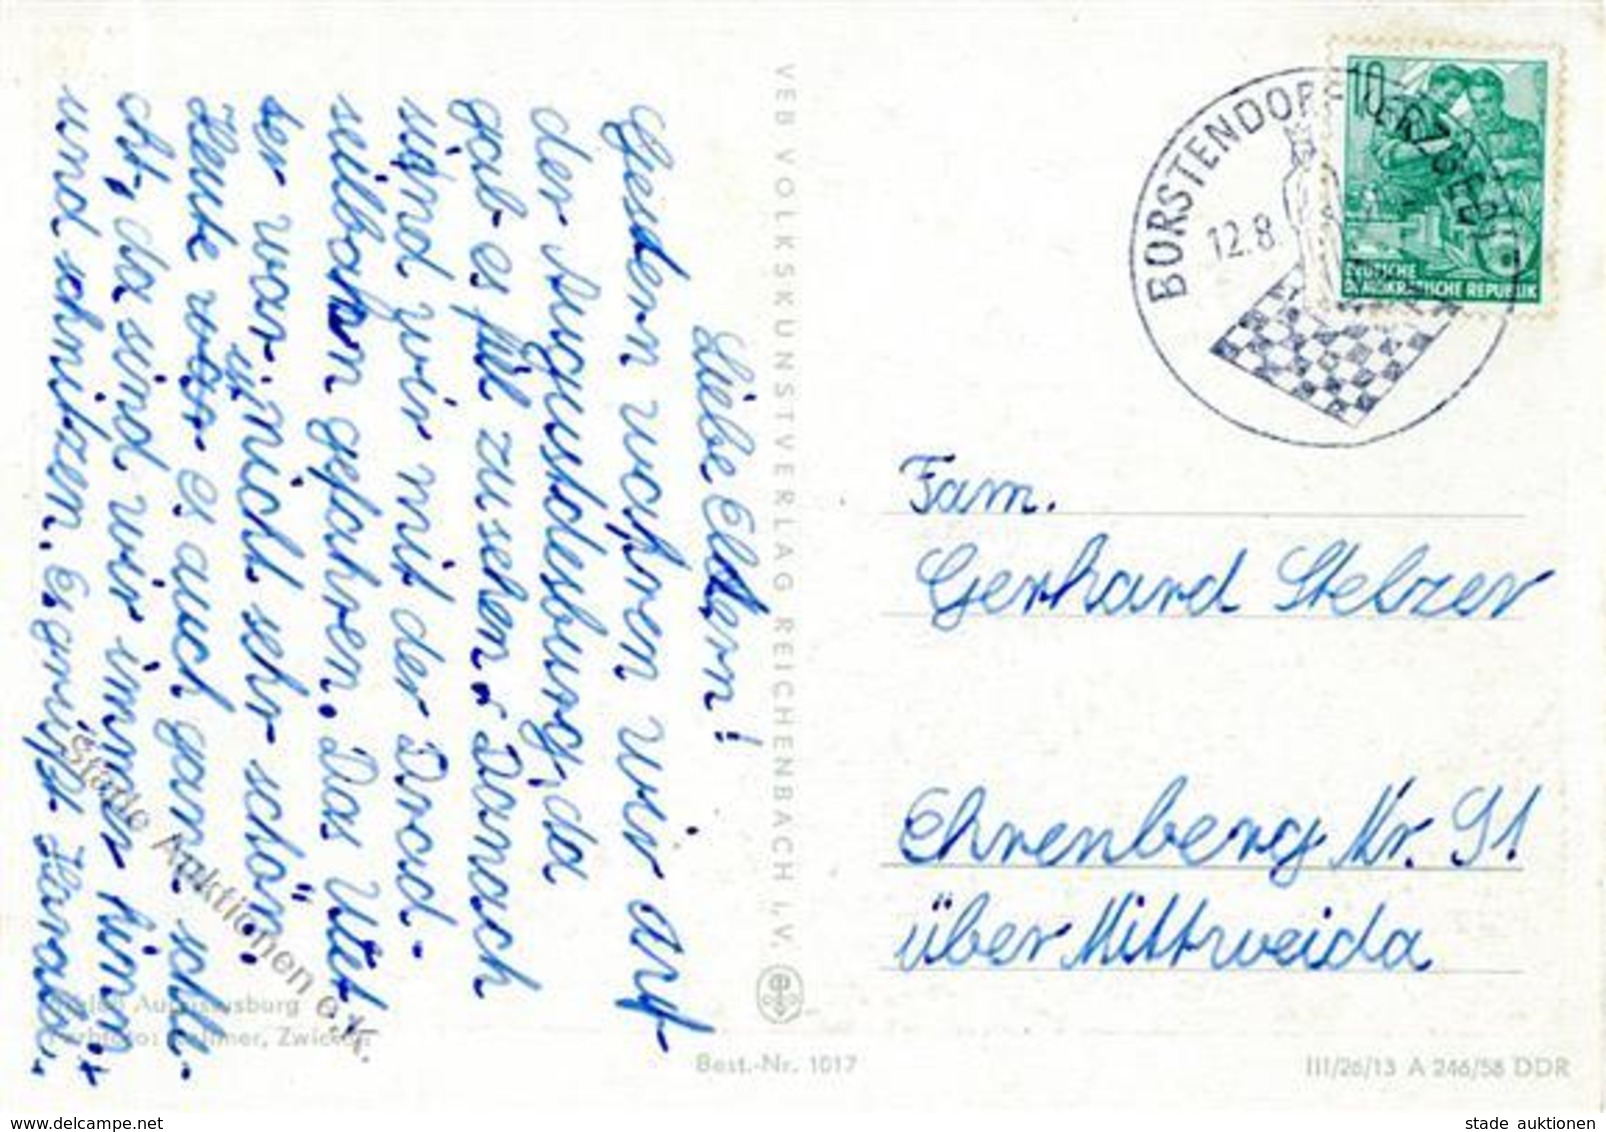 Liebe Eltern!
Gestern wahren wir auf
der Augustdesburg, da
gab es fiel zusehen. Danach
sind wir mit der Drad-
seilbahn gefahren. Das Wet
ter war nicht sehr schön.
Heute war es auch ganz schle-
cht, da sind wir immer hinn
und schnitzen. Es grüßt Harald.
VEB VOLKSKUNSTVERLAG REICHENBACH I. V.
BORSTENDORF (ERZGEB)
12.8
10
DEUTSCHE
DEMOKRATISCHE REPUBLIK
Fam.
Gerhard Stelzer
Ehrenberg Nr. 91
über Mittweida
Augustusburg
Zwickau
Best.-Nr. 1017
III/26/13 A 246/58 DDR
Stade Auktionen e.K.
www.delcampe.net
stade auktionen